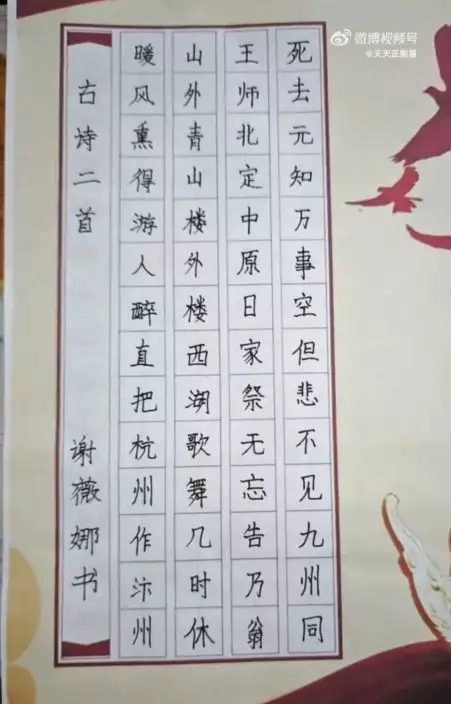 微博视频号
@天天正能量
死去元知万事空但悲不见九州同
王师北定中原日家祭无忘告乃翁
山外青山楼外楼西湖歌舞几时休
暖风熏得游人醉直把杭州作汴州
古诗二首
谢薇娜书